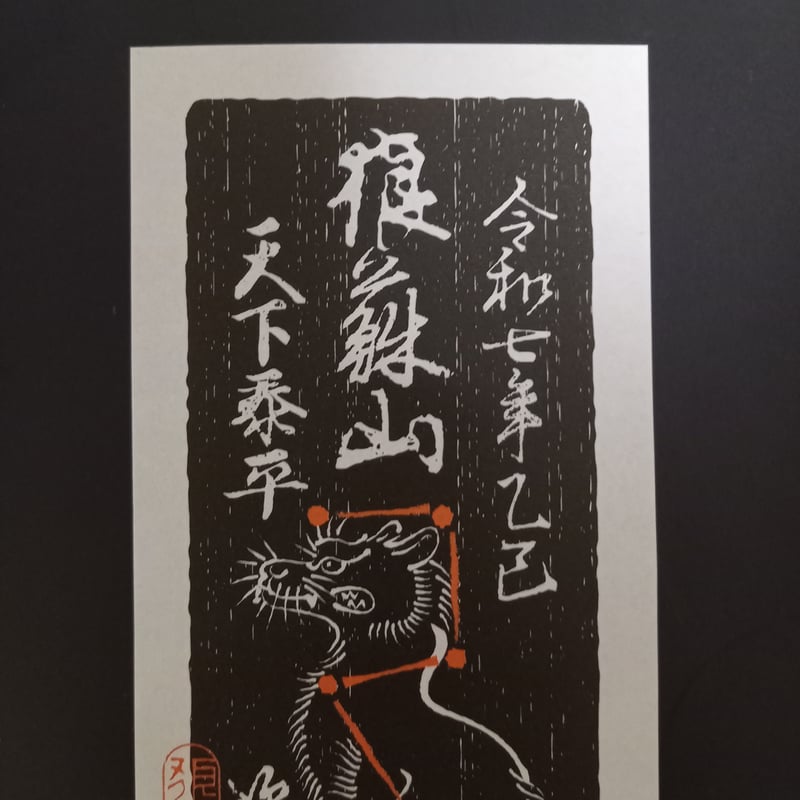 令和七年乙巳
狼蘇山
天下泰平